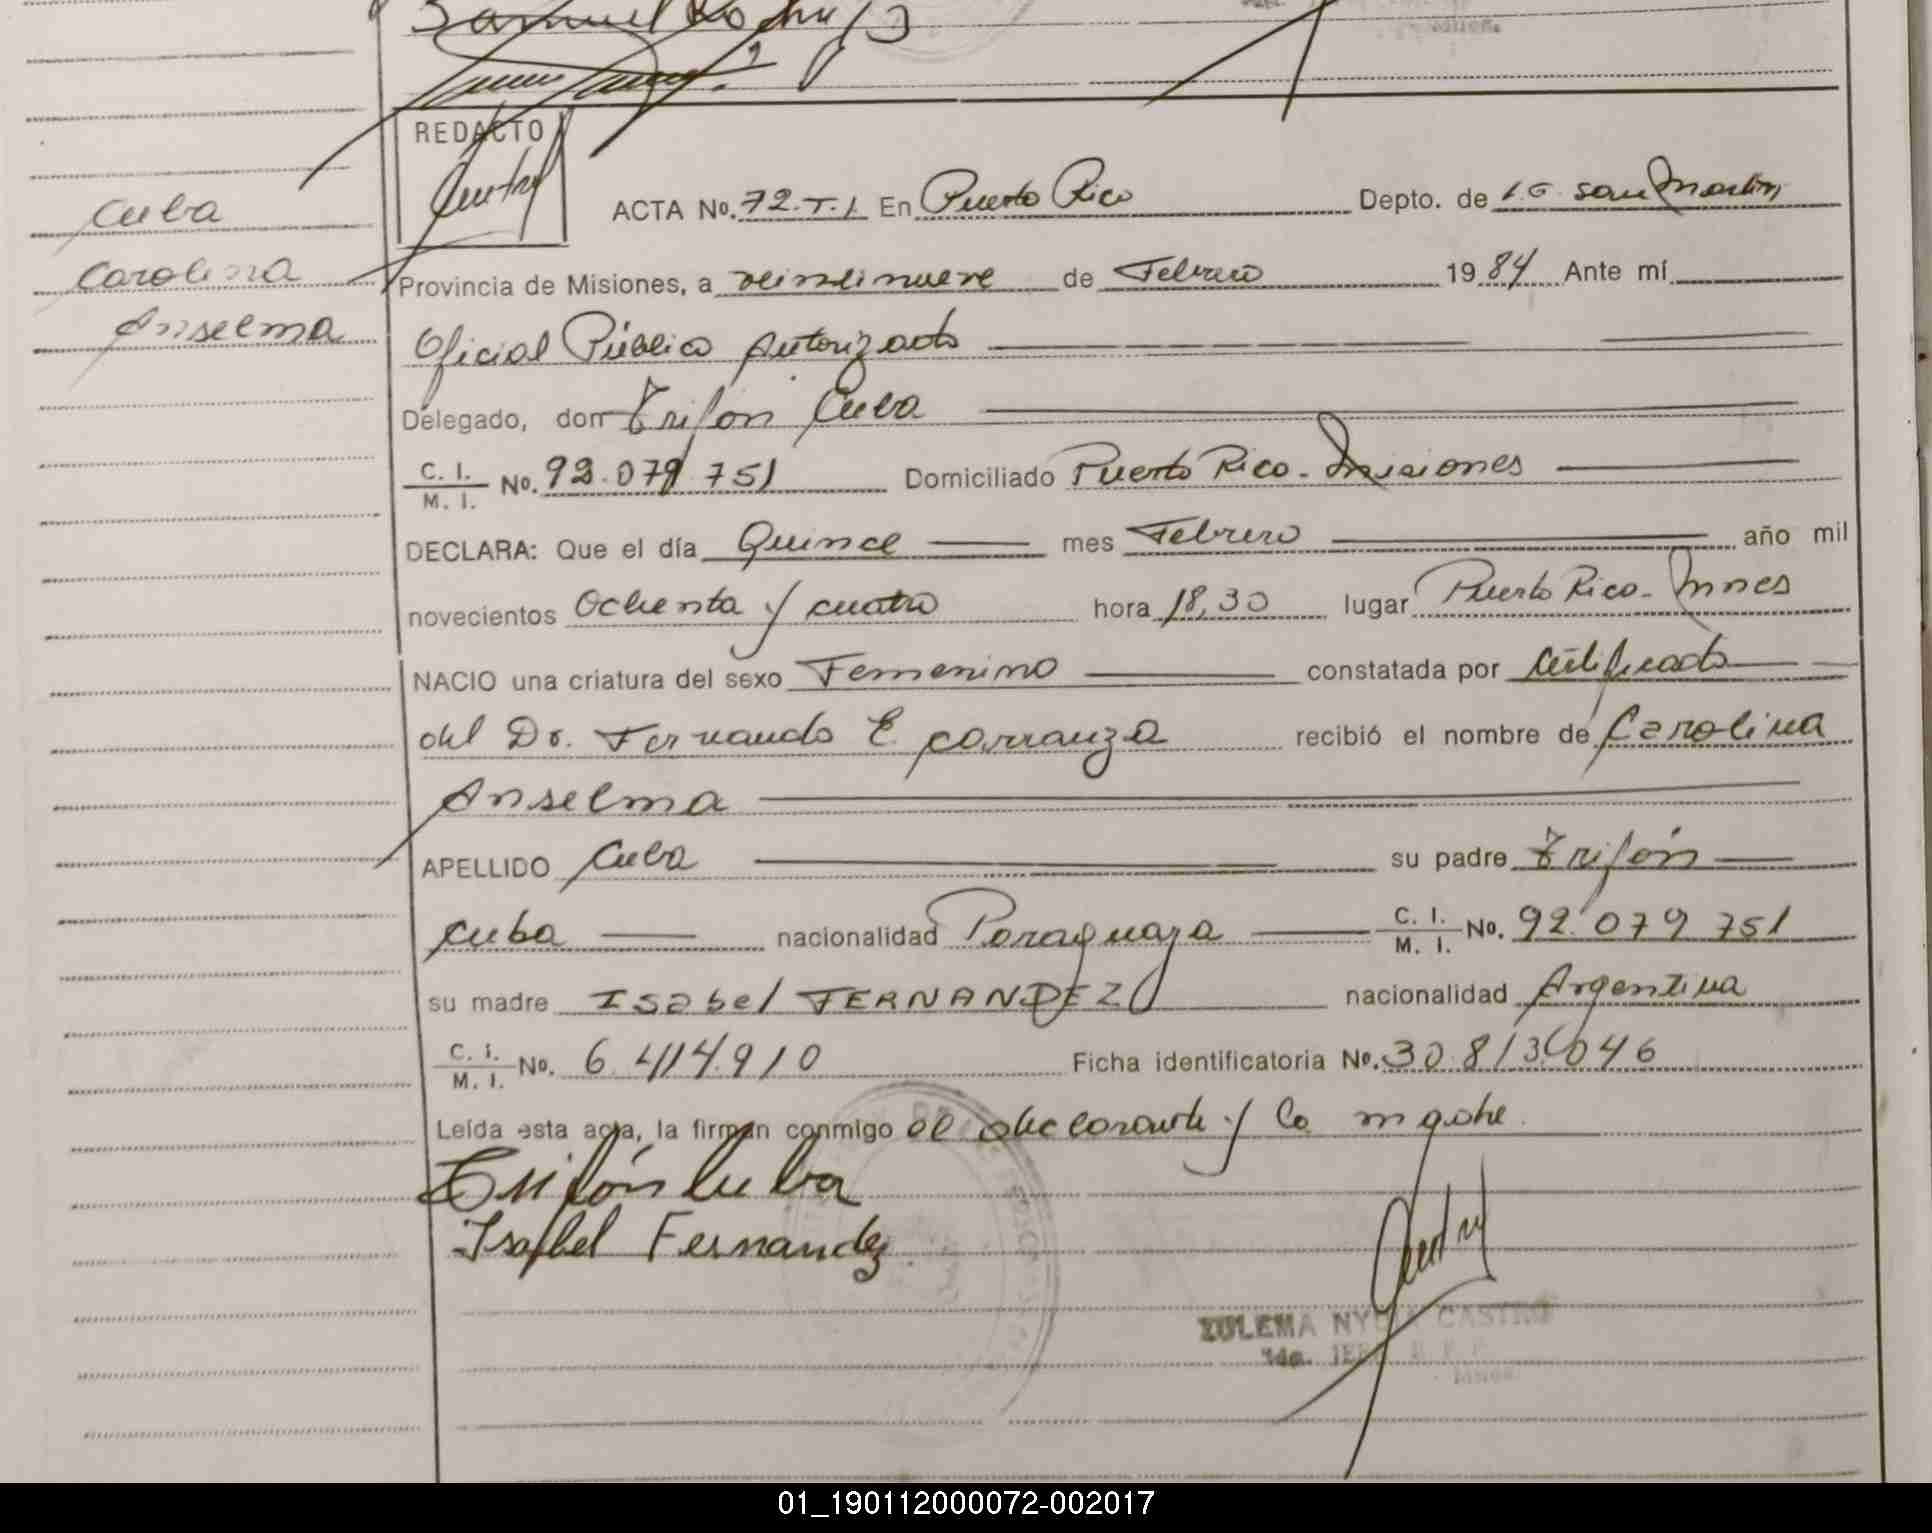 Samuel
REDACTO
ACTA No. 72.T.1 En Puerto Rico Depto. de L.G. San Martin
Cuba
Carolina
Anselma
Provincia de Misiones, a veintinueve de Febrero 19 84 Ante mí
Oficial Público Autorizado
Delegado, don Trifón Cuba
C. I. / M. I. No. 92.079.751 Domiciliado Puerto Rico - Misiones
DECLARA: Que el día Quince mes Febrero año mil
novecientos Ochenta y cuatro hora 18,30 lugar Puerto Rico - Mnes
NACIO una criatura del sexo Femenino constatada por Certificado
del Dr. Fernando E Carranza recibió el nombre de Carolina
Anselma
APELLIDO Cuba su padre Trifón
Cuba nacionalidad Paraguaya C. I. / M. I. No. 92.079 751
su madre Isabel FERNANDEZ nacionalidad Argentina
C. I. / M. I. No. 6.414.910 Ficha identificatoria No. 30.813.046
Leída esta acta, la firman conmigo el declarante y la madre.
Trifón Cuba
Isabel Fernandez
ZULEMA NYDIA CASTRO
01_190112000072-002017